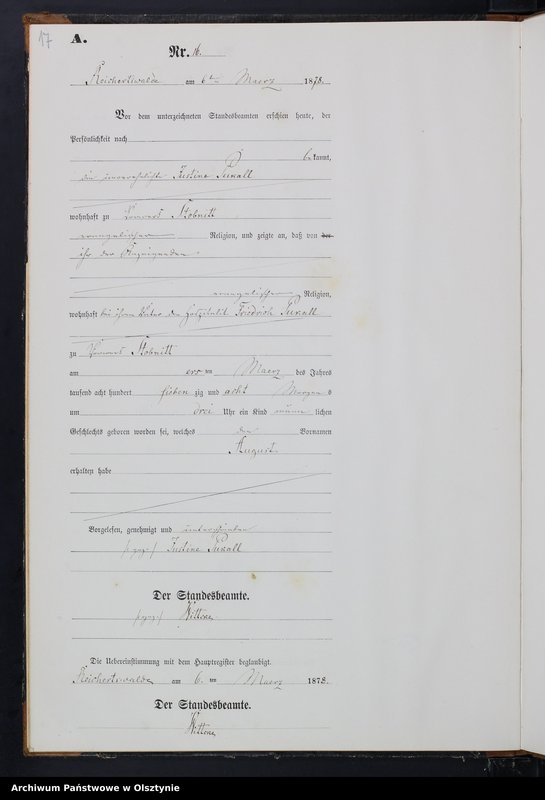 17
A.
Nr. 16.
Reichertswalde am 6ten Maerz 1878.
Vor dem unterzeichneten Standesbeamten erschien heute, der
Persönlichkeit nach
bekannt,
die unverehelichte Justine
wohnhaft zu Vorwerk Stobnitt
evangelischer Religion, und zeigte an, daß von der
ihr der Anzeigenden
evangelischer Religion,
wohnhaft bei ihrem Vater dem Friedrich
zu Vorwerk Stobnitt
am ersten Maerz des Jahres
tausend acht hundert sieben zig und acht Morgens
um drei Uhr ein Kind männlichen
Geschlechts geboren worden sei, welches den Vornamen
August
erhalten habe
Vorgelesen, genehmigt und unterschrieben
gez. Justine
Der Standesbeamte.
gez.
Die Uebereinstimmung mit dem Hauptregister beglaubigt.
Reichertswalde am 6. ten Maerz 1878.
Der Standesbeamte.
Archiwum Państwowe w Olsztynie